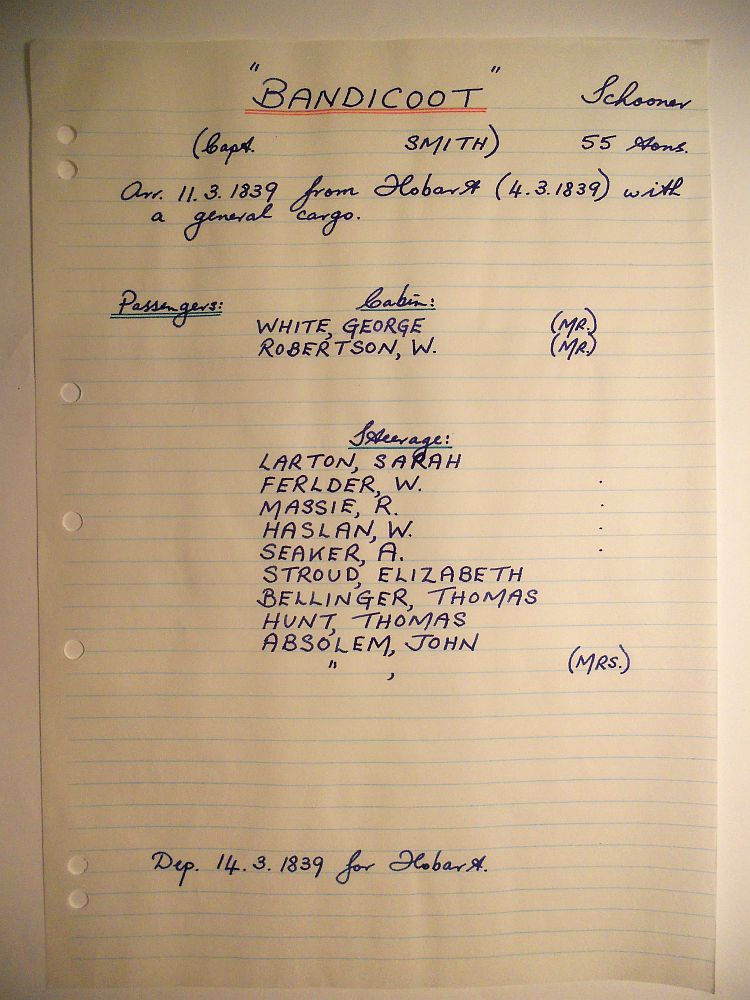 "BANDICOOT" Schooner
(Capt. SMITH) 55 tons.
Arr. 11.3.1839 from Hobart (4.3.1839) with
a general cargo.
Passengers: Cabin:
WHITE, GEORGE (MR.)
ROBERTSON, W. (MR.)
Steerage:
LARTON, SARAH
FERLDER, W. .
MASSIE, R. .
HASLAN, W. .
SEAKER, A. .
STROUD, ELIZABETH
BELLINGER, THOMAS
HUNT, THOMAS
ABSOLEM, JOHN
" , (MRS.)
Dep. 14.3.1839 for Hobart.